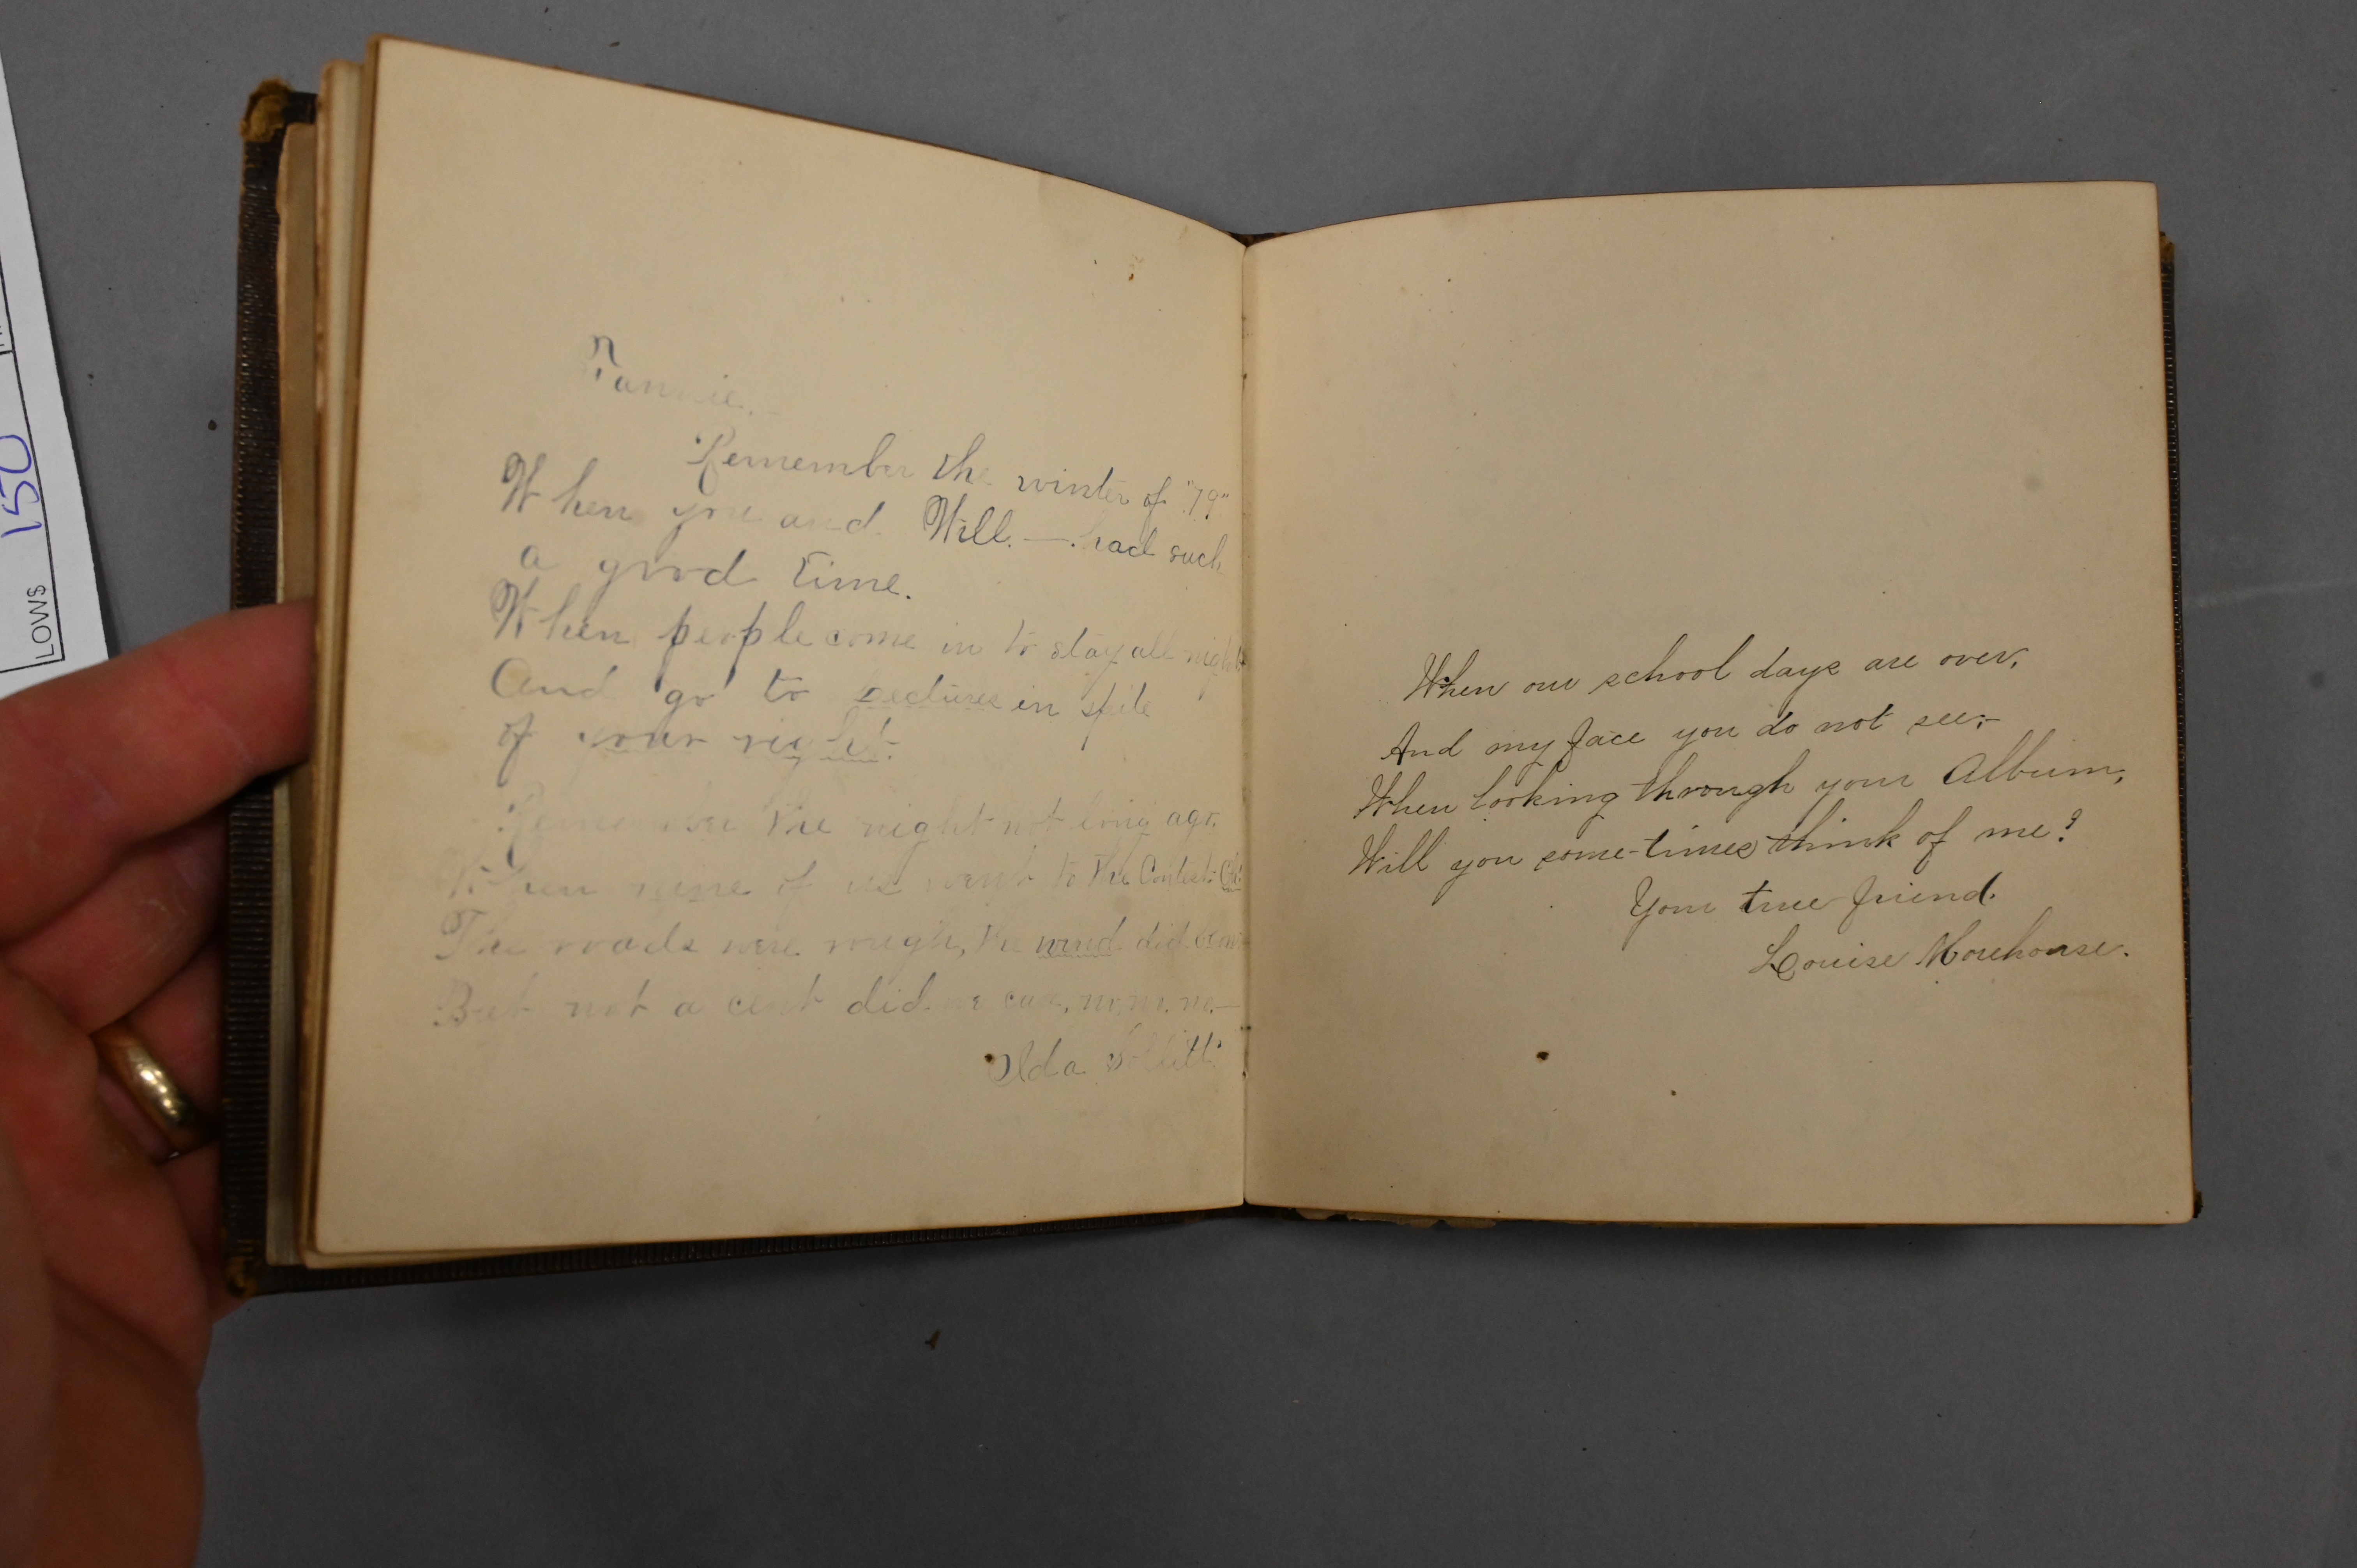 LOWS 150
Fannie.
Remember the winter of "79"
When you and Will. —. had such
a good time.
When people come in to stay all night
And go to Lectures in spite
of your right.
Remember the night not long ago.
When nine of us went to the Contest: Oh!
The roads were rough, the wind did blow
But not a cent did we care, no, no, no,—
Ida
When our school days are over,
And my face you do not see;—
When looking through your Album,
Will you some-times think of me?
Your true friend.
Louise Morehouse.